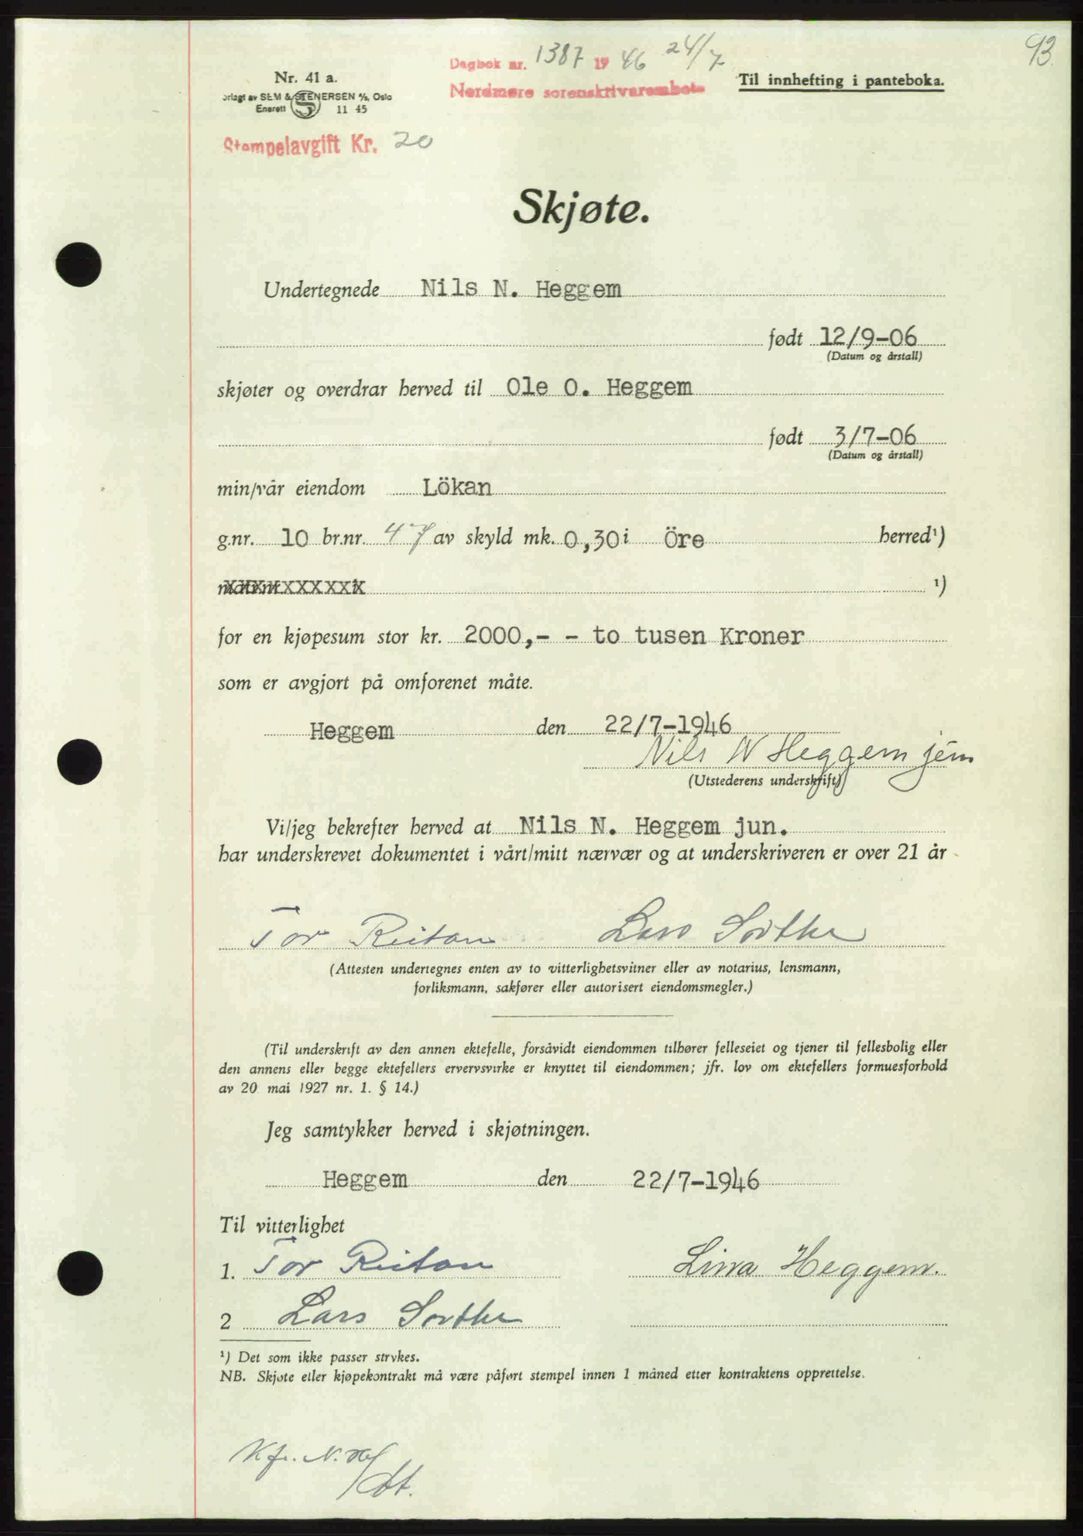 93
Dagbok nr. 1387 1946 24/7
Nordmøre sorenskriverembete
Nr. 41 a.
Til innhefting i panteboka.
orlagt av SEM & STENERSEN A/S, Oslo
Enerett S 11 45
Stempelavgift Kr. 20
Skjøte.
Undertegnede Nils N. Heggem
født 12/9-06
(Datum og årstall)
skjøter og overdrar herved til Ole O. Heggem
født 3/7-06
(Datum og årstall)
min/vår eiendom Lökan
g.nr. 10 br.nr. 47 av skyld mk. 0,30 i Öre herred¹)
¹)
for en kjøpesum stor kr. 2000,- - to tusen Kroner
som er avgjort på omforenet måte.
Heggem den 22/7-1946
Nils N Heggem jun
(Utstederens underskrift)
Vi/jeg bekrefter herved at Nils N. Heggem jun.
har underskrevet dokumentet i vårt/mitt nærvær og at underskriveren er over 21 år
Tor Reitan Lars
(Attesten undertegnes enten av to vitterlighetsvitner eller av notarius, lensmann,
forliksmann, sakfører eller autorisert eiendomsmegler.)
(Til underskrift av den annen ektefelle, forsåvidt eiendommen tilhører felleseiet og tjener til fellesbolig eller
den annens eller begge ektefellers ervervsvirke er knyttet til eiendommen; jfr. lov om ektefellers formuesforhold
av 20 mai 1927 nr. 1. § 14.)
Jeg samtykker herved i skjøtningen.
Heggem den 22/7-1946
Til vitterlighet
1. Tor Reitan Lina Heggem.
2 Lars
¹) Det som ikke passer strykes.
NB. Skjøte eller kjøpekontrakt må være påført stempel innen 1 måned etter kontraktens opprettelse.